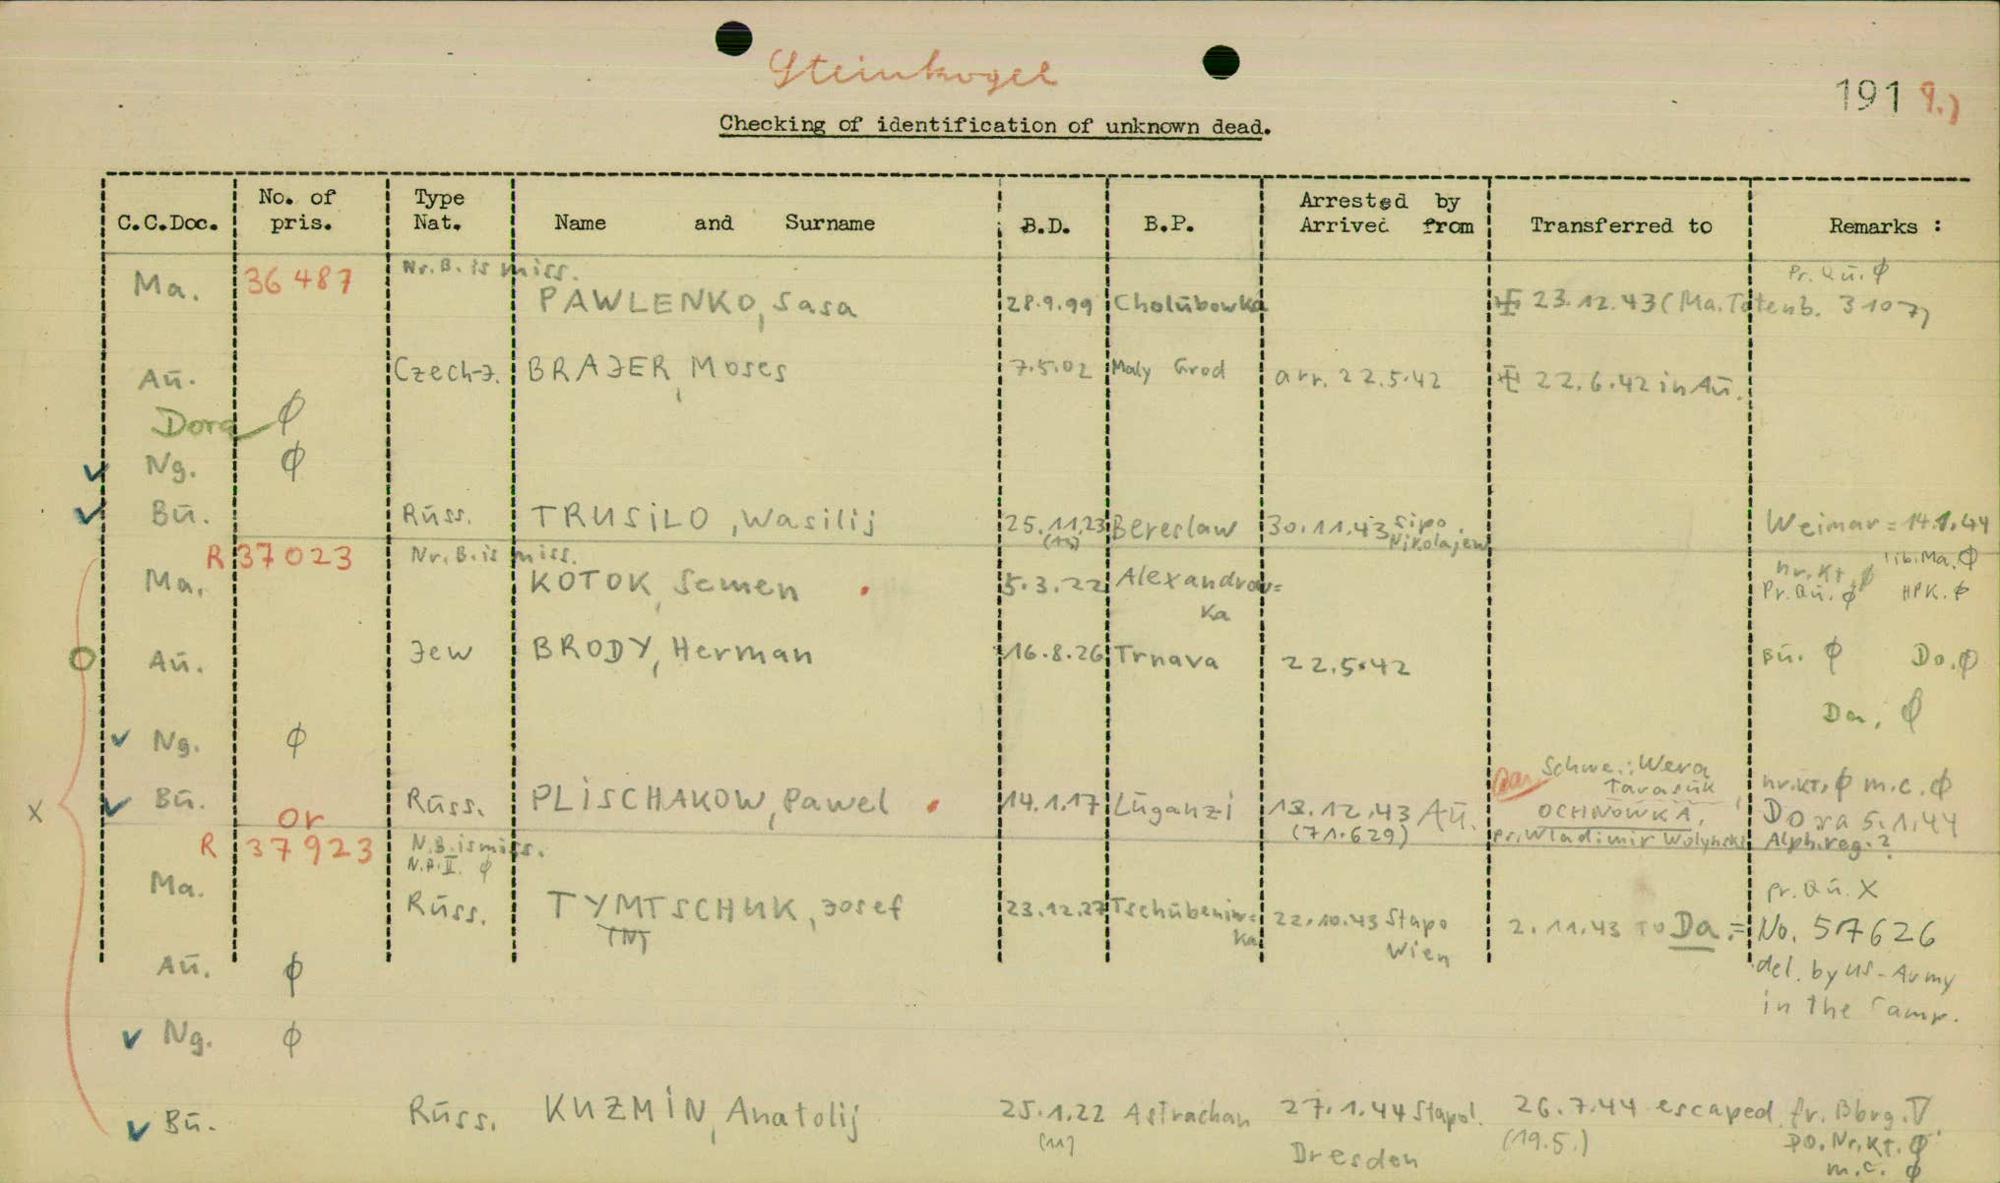 Steinkogel
191 9.)
Checking of identification of unknown dead.
C.C.Doc. No. of pris. Type Nat. Name and Surname B.D. B.P. Arrested by Arrived from Transferred to Remarks :
Ma. 36487 Nr. B. is miss. Pr. Qū. ϕ
PAWLENKO, Sasa 28.9.99 Cholūbowka 23.12.43 (Ma. Totenb. 3107)
Aū. Czech-J. BRAJER, Moses 7.5.02 Maly Grod arr. 22.5.42 22.6.42 in Aū.
Dora ϕ
Ng. ϕ
Bū. Rūss. TRUSiLO, Wasilij 25.11.23 Bereslaw 30.11.43 Sipo. Nikolajew Weimar = 14.1.44
(11)
R 37023 Nr. B. is miss. nr. Kt. ϕ lib. Ma. ϕ
Ma. KOTOK, Semen 5.3.22 Alexandrow= Pr. Qū. ϕ HPK. ϕ
ka
Aū. Jew BRODY, Herman 16.8.26 Trnava 22.5.42 Bū. ϕ Do. ϕ
Da. ϕ
Ng. ϕ
Schwe.: Wera
Tarasūk nr. Kt. ϕ m.c. ϕ
Bū. Rūss. PLiSCHAKOW, Pawel 14.1.17 Lūganzi 13.12.43 Aū. OCHNOWKA, Dora 5.1.44
or (71.629) pr. Wladimir Wolynski Alph. reg. ?
R 37923 N.B. is miss.
N.A. II. ϕ
Ma. pr. Qū. X
Rūss. TYMTSCHUK, Josef 23.12.27 Tschūbeniw= 22.10.43 Stapo 2.11.43 to Da. = No. 57626
(N) ka Wien
Aū. ϕ del. by US-Army
in the Camp.
Ng. ϕ
x
Bū. Rūss. KUZMiN, Anatolij 25.1.22 Astrachan 27.1.44 Stapol. 26.7.44 escaped fr. Bbrg. V.
(11) Dresden (19.5.) DO. Nr. Kt. ϕ
m.c. ϕ